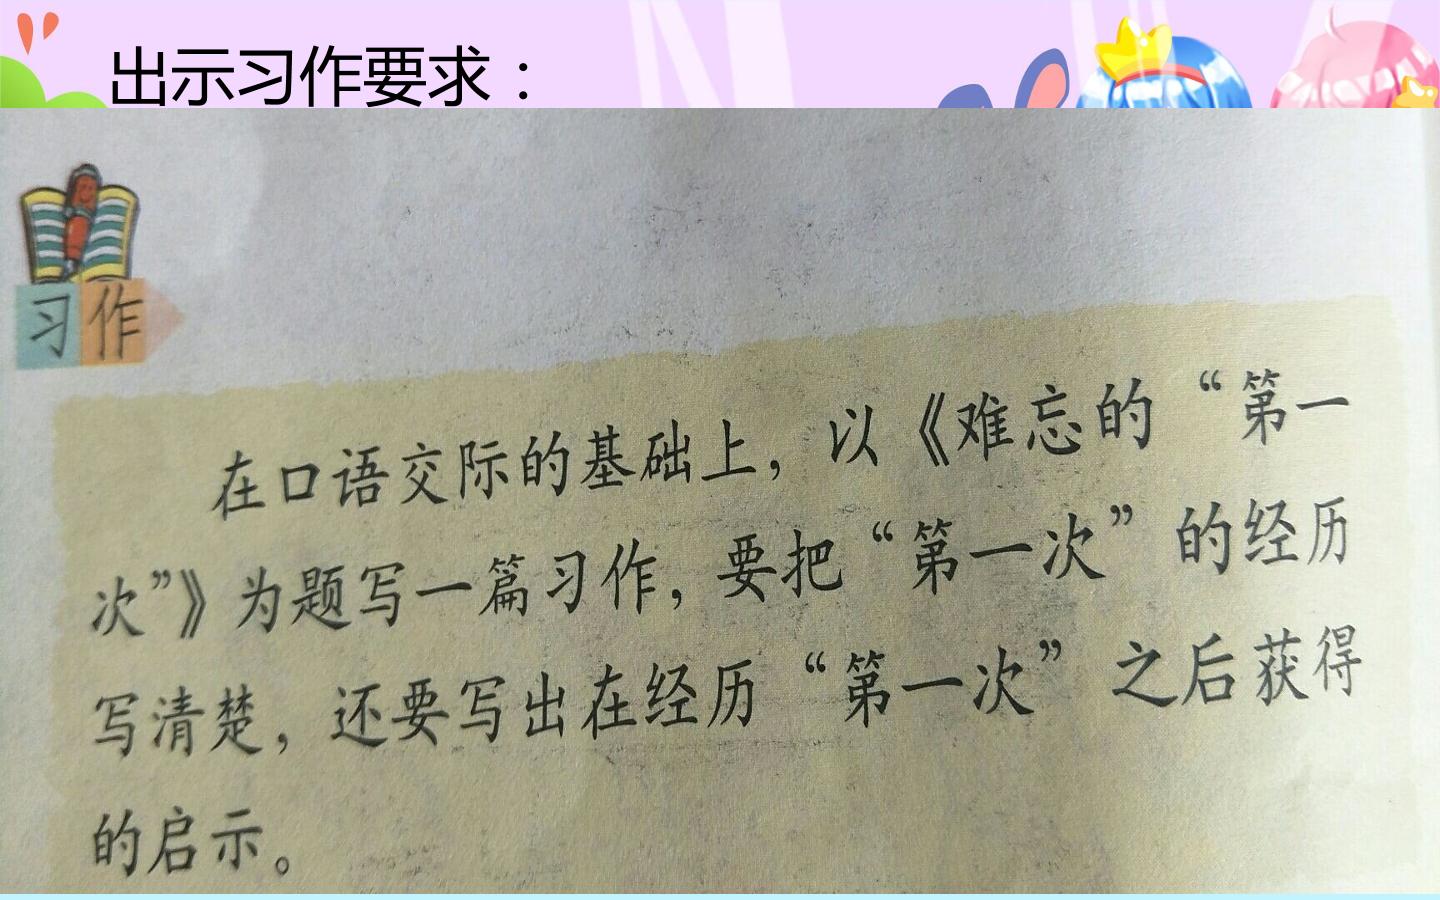 出示习作要求：
习作
在口语交际的基础上，以《难忘的“第一
次”》为题写一篇习作，要把“第一次”的经历
写清楚，还要写出在经历“第一次”之后获得
的启示。